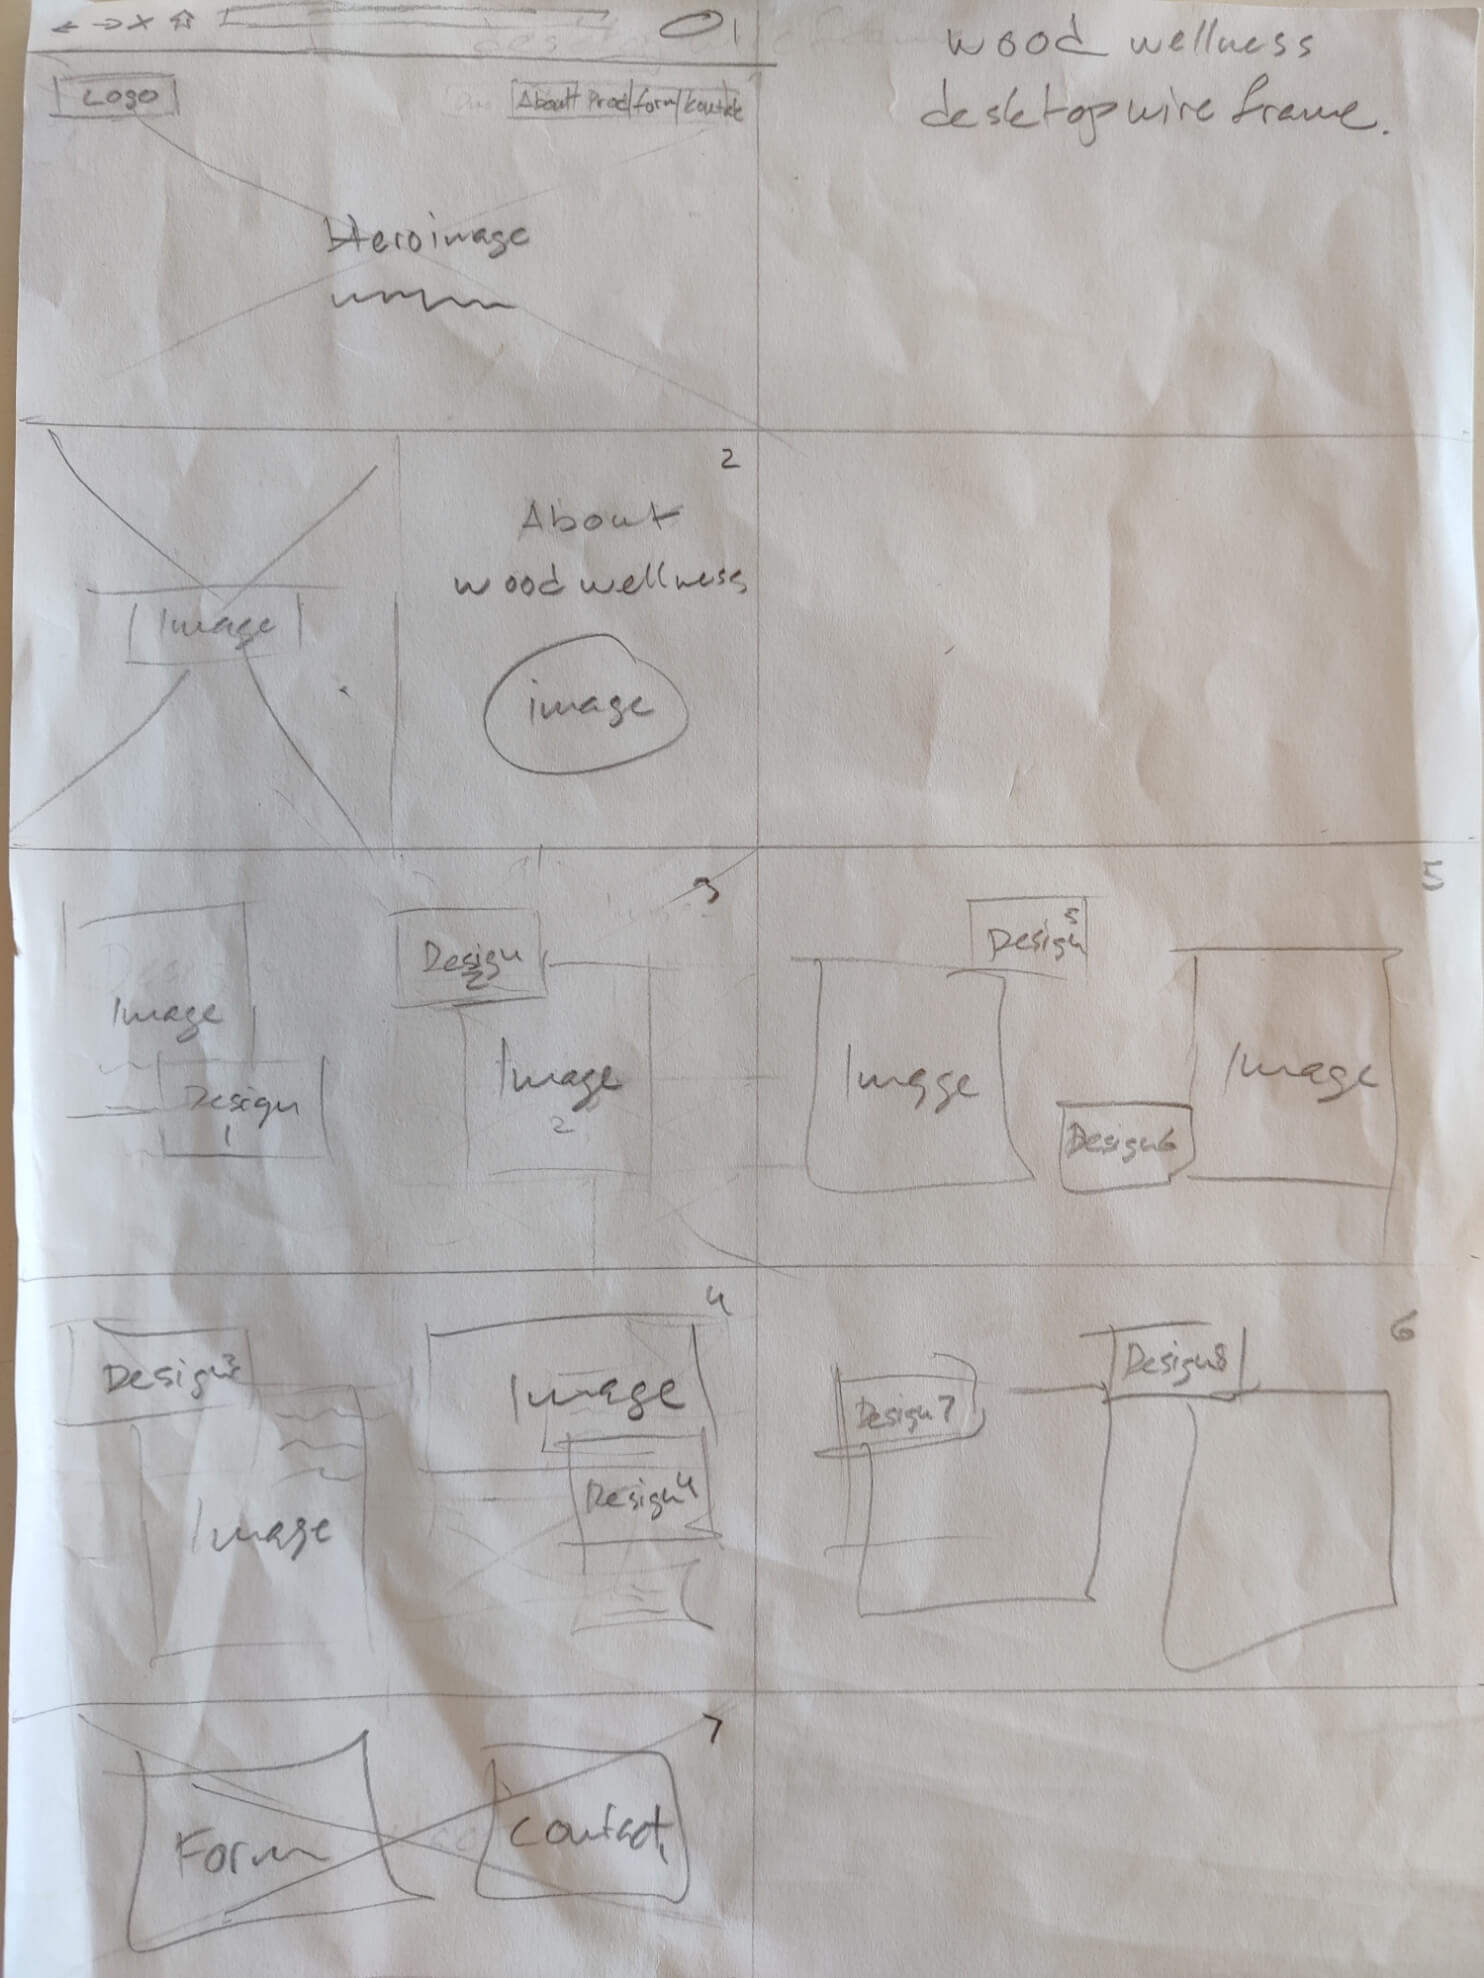 1
wood wellness
desktop wireframe.
Logo
About Prod form kontakt
Hero image
2
About
wood wellness
Image
image
3
Image
Design
1
Design
2
Image
2
5
Design 5
Image
Image
Design 6
4
Design 3
Image
Image
Design 4
6
Design 7
Design 8
7
Form
Contact